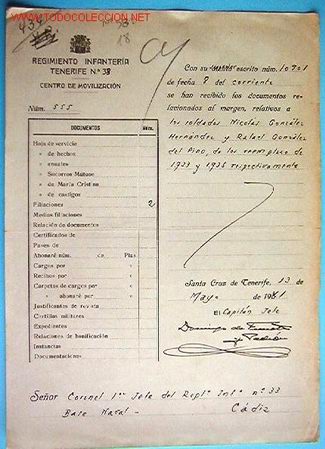 WWW.TODOCOLECCION.NET
18
REGIMIENTO INFANTERÍA
TENERIFE N.º 38
CENTRO DE MOVILIZACIÓN
Núm. 555
DOCUMENTOS Núm.
Hoja de servicio
» de hechos
» anuales
» Socorros Mútuos
» de María Cristina
» de castigos
Filiaciones 2
Medias filiaciones
Relación de documentos
Certificados de
Pases de
Abonaré núm. de Ptas
Cargos por »
Recibos por »
Carpetas de cargos por »
» abonaré por »
Justificantes de revista
Cartillas militares
Expedientes
Relaciones de bonificación
Instancias
Documentaciones
Con su escrito núm. 10.701
de fecha 8 del corriente
se han recibido los documentos re-
lacionados al margen, relativos a
los soldados Nicolas González
Hernández y Rafael González
del Pino, de los reemplazos de
1933 y 1936 respectivamente
Santa Cruz de Tenerife, 13 de
Mayo de 1941
El Capitán Jefe
Señor Coronel 1er Jefe del Regtº Infª nº 33
Base Naval - Cádiz